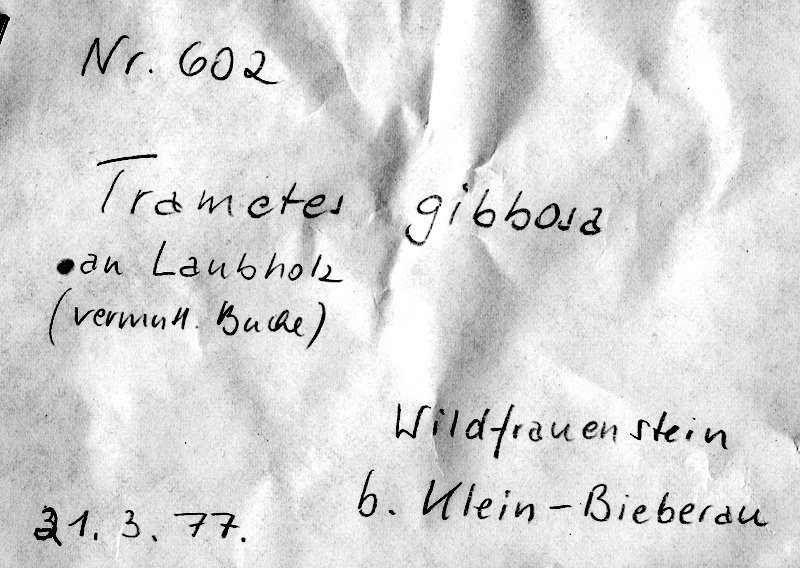 Nr. 602
Trametes gibbosa
an Laubholz
(vermutl. Buche)
Wildfrauenstein
b. Klein-Bieberau
21. 3. 77.